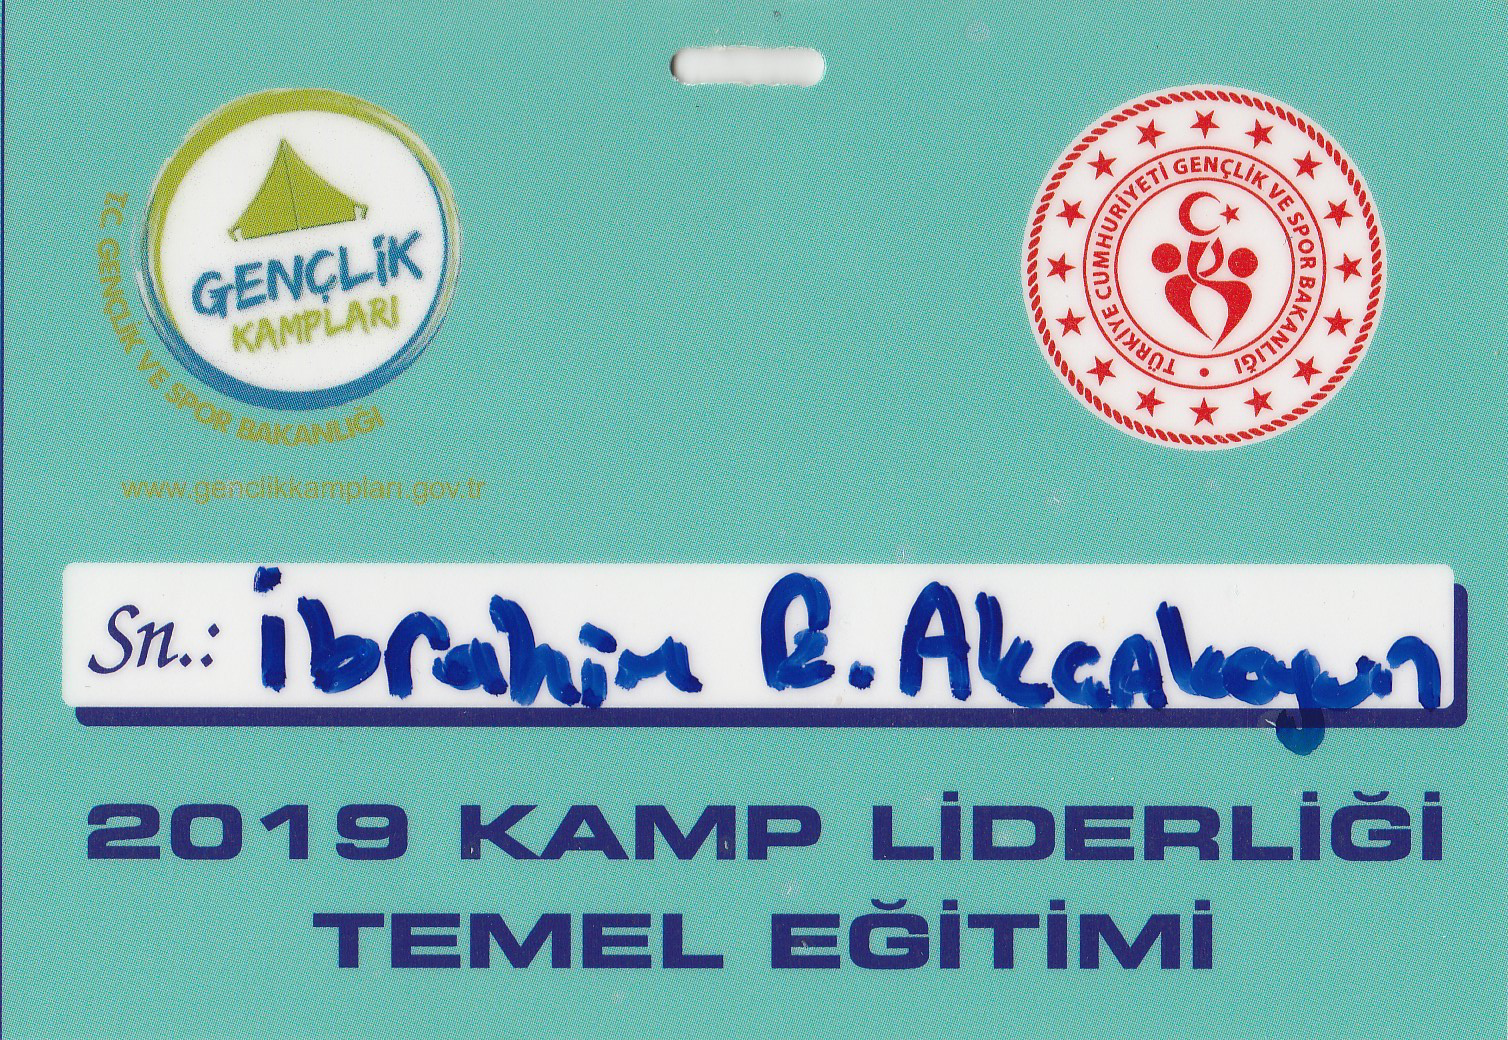 GENÇLİK
KAMPLARI
T.C. GENÇLİK VE SPOR BAKANLIĞI
www.genclikkamplari.gov.tr
TÜRKİYE CUMHURİYETİ GENÇLİK VE SPOR BAKANLIĞI
Sn.: İbrahim R. Akçakoyun
2019 KAMP LİDERLİĞİ
TEMEL EĞİTİMİ